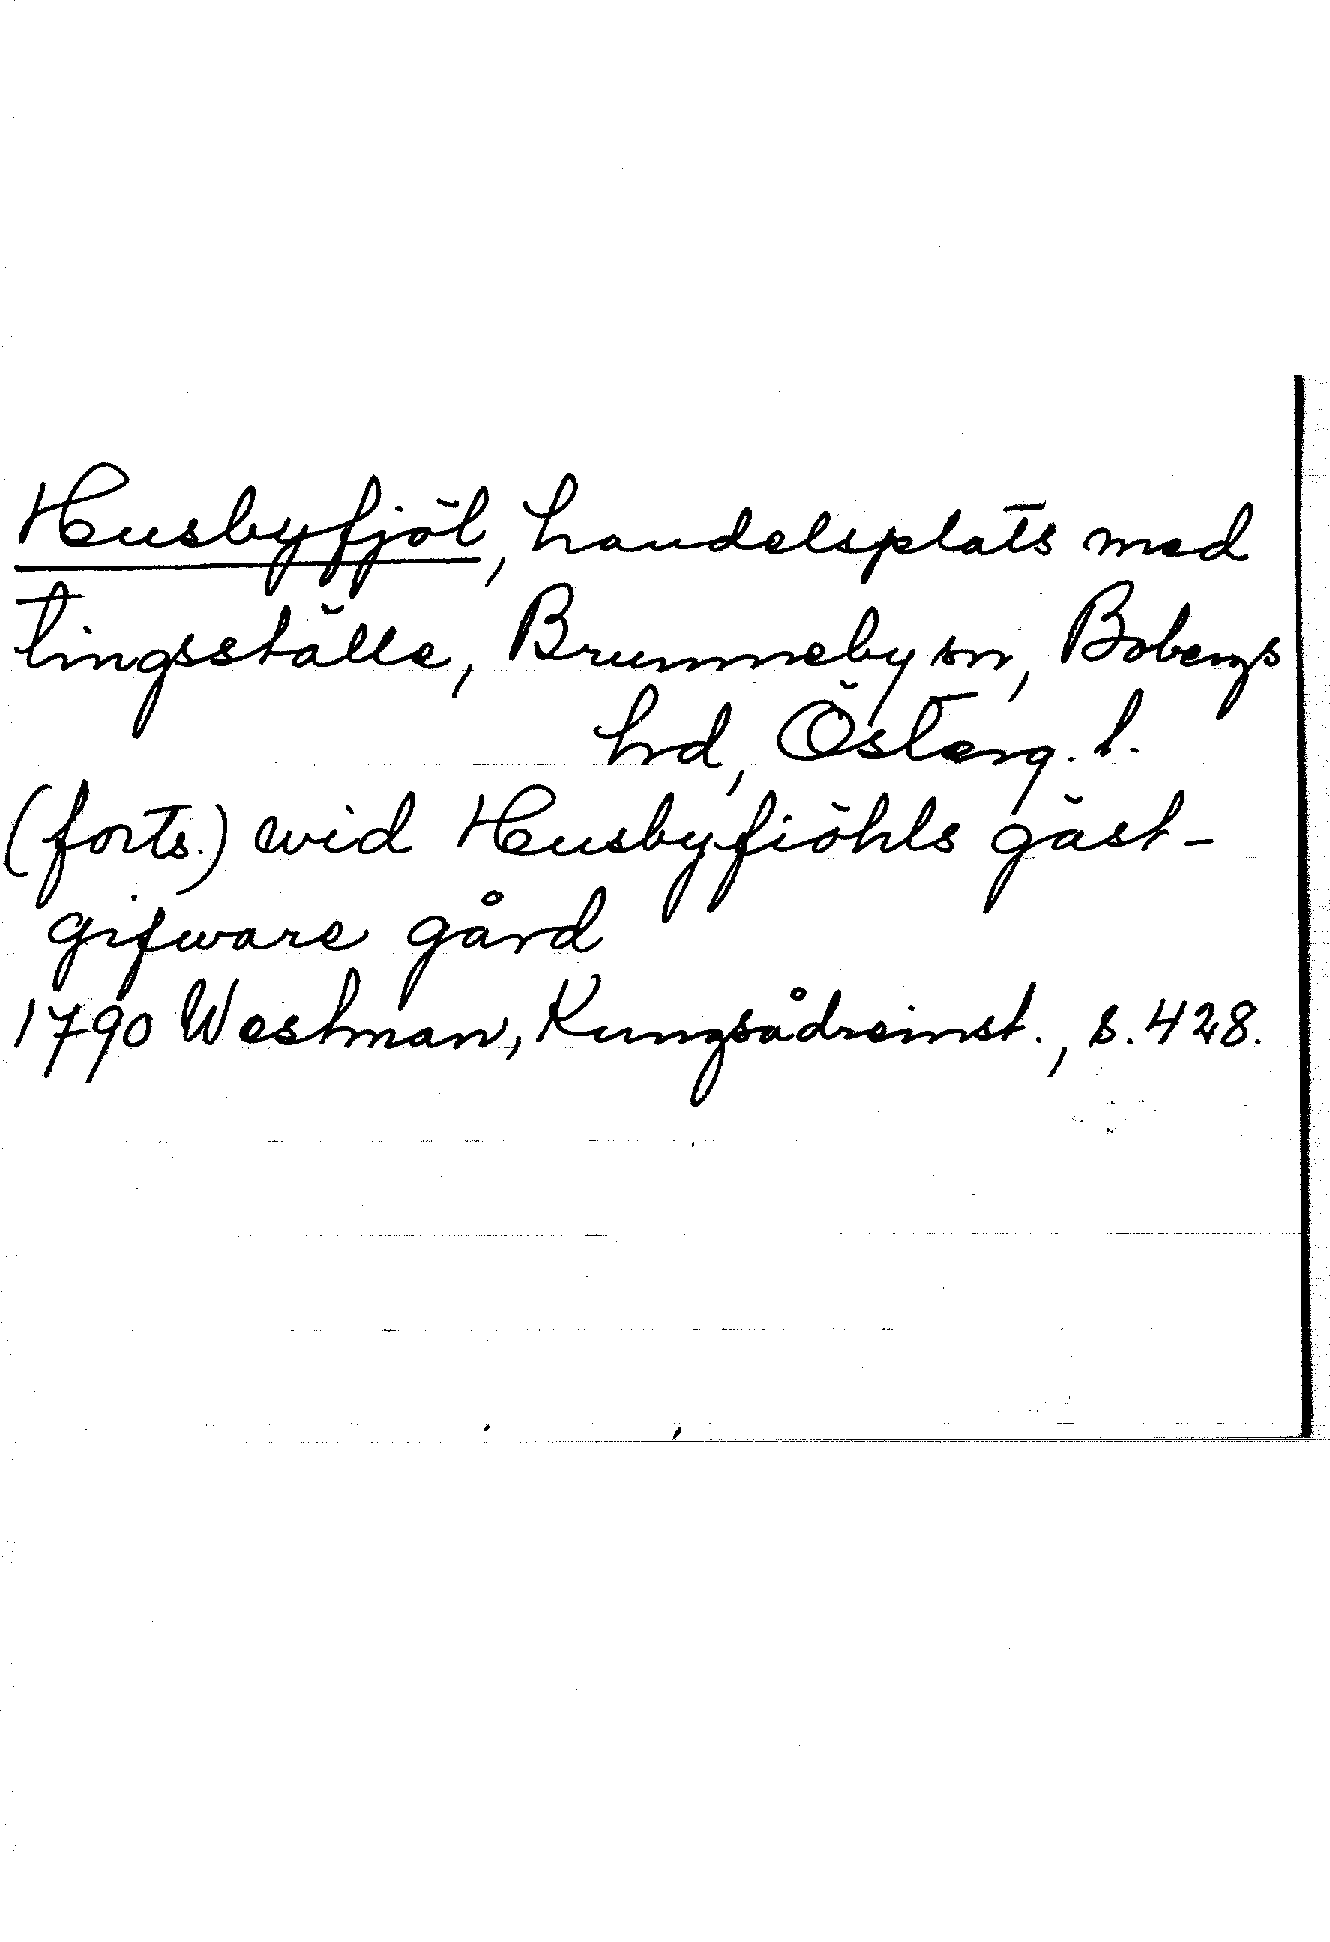 Husbyfjöl, handelsplats med
tingsställe, Brunneby sn, Bobergs
hrd, Österg. l.
(forts.) wid Husbyfiöhls gäst-
gifware gård
1790 Westman, Kungsådreinst., s. 428.